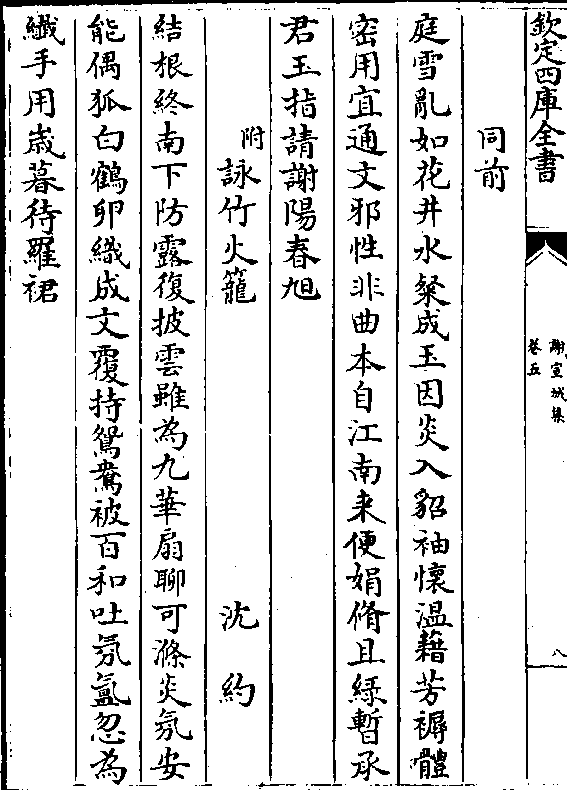 欽定四庫全書
謝宣城集
卷五
八
同前
庭雪亂如花井水粲成玉因炎入貂袖懷溫藉芳褥體
密用宜通文邪性非曲本自江南来便娟脩且綠暫承
君玉指請謝陽春旭
附詠竹火籠 沈約
結根終南下防露復披雲雖為九華扇聊可滌炎氛安
能偶狐白鶴卵織成文覆持鴛鴦被百和吐氛氳忽為
纎手用嵗暮待羅裙